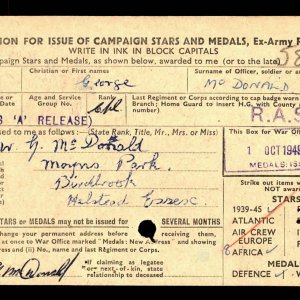 ION FOR ISSUE OF CAMPAIGN STARS AND MEDALS, Ex-Army
WRITE IN INK IN BLOCK CAPITALS
paign Stars and Medals, as shown below, awarded to me (or to the late)
Christian or First names
Surname of officer, soldier or
George
McDONALD
Age and Service
Group No.
Rank
Cpl
Last Regiment or Corps
Branch; Home Guard to show H.G. with County
R.A.S
S 'A' RELEASE)
ed to me as follows:— (State Rank, Title, Mr., Mrs. or Miss)
This Box for War Off
1 OCT 1949
MEDALS: IS
Mr G McDonald
Moyns Park,
Birdbrook
Halstead Essex
Strike out items
NOT AWARDE
STARS
1939-45
ATLANTIC
AIR CREW
EUROPE
AFRICA
MEDAL
DEFENCE
STARS or MEDALS may not be issued for SEVERAL MONTHS
to War Office marked "Medals: New Address" and showing
Last Regiment or Corps.
G McDonald
If claiming as legatee
or next-of-kin, state
relationship to deceased